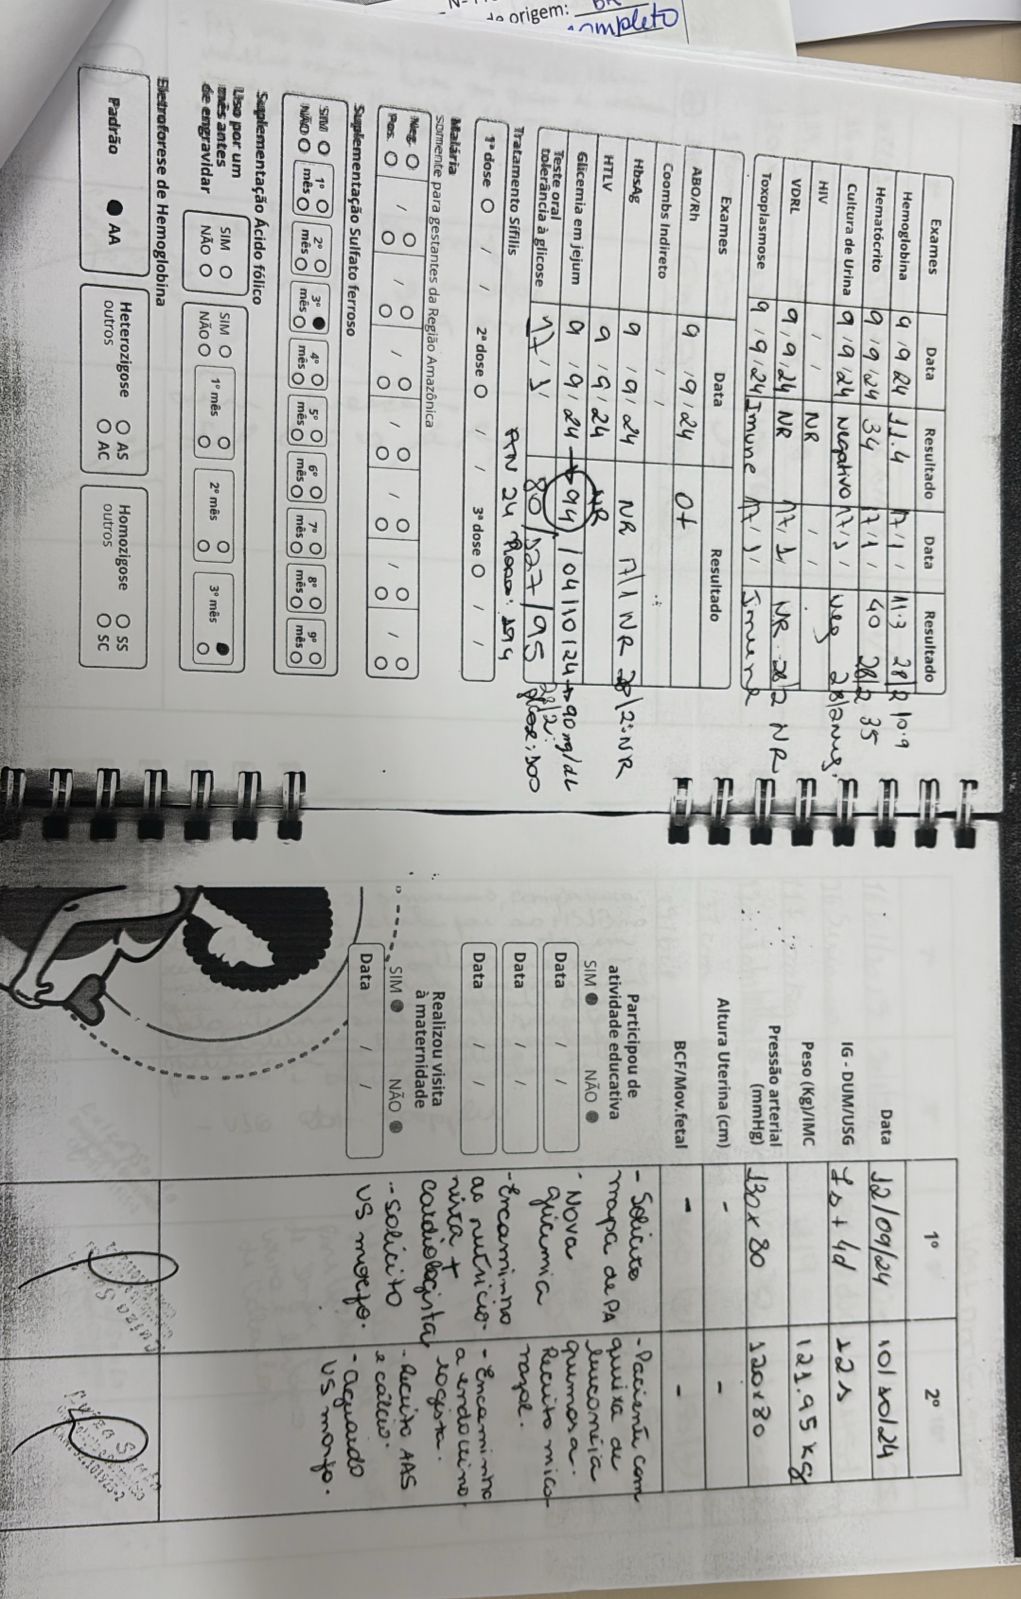 de origem:
completo
Exames Data Resultado Data Resultado
Hemoglobina 9 9 24 11.4 17/1/ 11.3 28/2 10.9
Hematócrito 9/9/24 34 17/1/ 40 28/2 35
Cultura de Urina 9/9/24 Negativo 17/1/ Neg 28/2 Neg.
HIV / / NR / /
VDRL 9/9/24 NR 17/1/ NR 28/2 NR
Toxoplasmose 9/9/24 Imune 17/1/ Imune
Exames Data Resultado
ABO/Rh 9/9/24 O+
Coombs Indireto / /
HbsAg 9/9/24 NR 17/1 NR 28/2: NR
HTLV 9/9/24 NR
Glicemia em jejum 9/9/24 → 94 / 04/10/24 → 90 mg/dL
Teste oral
tolerância à glicose 17/1/ 80/127/95 28/2: glicose: 100
Tratamento Sífilis
1ª dose / / 2ª dose / / 3ª dose / /
24 194
Malária
somente para gestantes da Região Amazônica
Neg. / / / / / / /
Pos.
Suplementação Sulfato ferroso
SIM 1º mês 2º mês 3º mês 4º mês 5º mês 6º mês 7º mês 8º mês 9º mês
NÃO
Suplementação Ácido fólico
Uso por um
mês antes
de engravidar
SIM
NÃO
SIM
NÃO
1º mês 2º mês 3º mês
Eletroforese de Hemoglobina
Padrão AA
Heterozigose
outros
AS
AC
Homozigose
outros
SS
SC
1º 2º
Data 12/09/24 10/10/24
IG - DUM/USG 7s + 4d 12s
Peso (Kg)/IMC 121.95 kg
Pressão arterial
(mmHg) 130x80 120x80
Altura Uterina (cm) - -
BCF/Mov.fetal - -
Participou de
atividade educativa
SIM NÃO
Data / /
Data / /
Data / /
Realizou visita
à maternidade
SIM NÃO
Data / /
- Solicito
mapa de PA
- Nova
glicemia
- Encaminho
ao nutricio-
nista +
cardiologista
- Solicito
US morfo.
- Paciente com
queixa de
leucorréia
grumosa.
Receito mico-
nazol.
- Encaminho
a endocrino
logista.
- Receito AAS
e cálcio.
- Aguardo
US morfo.